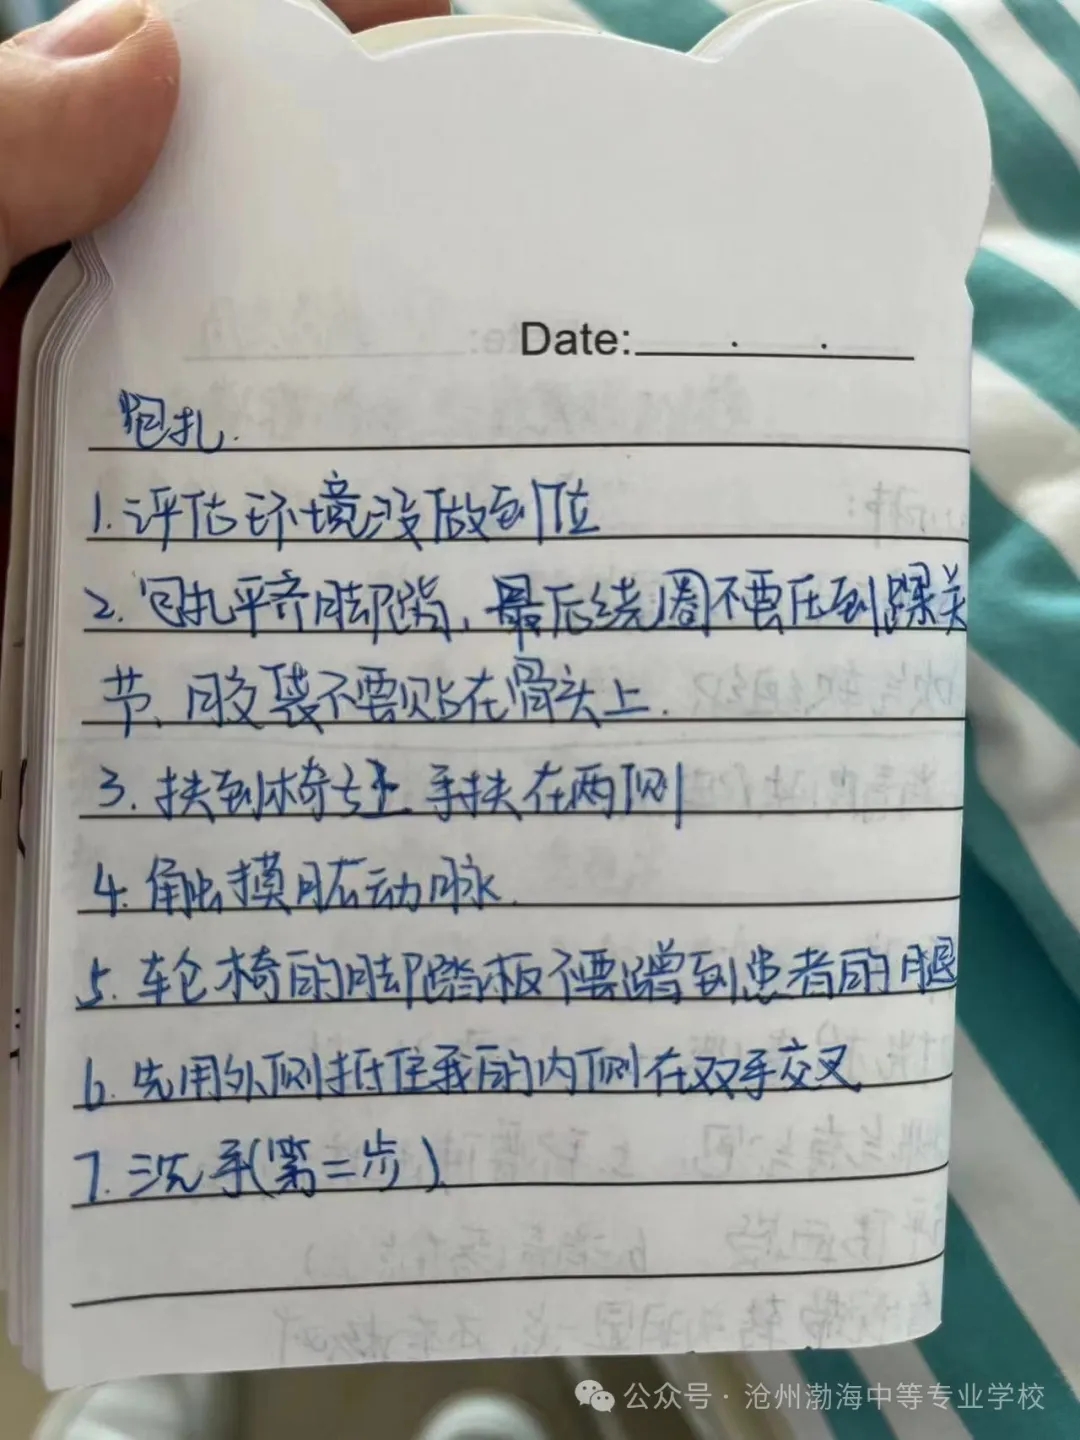 Date:
包扎.
1.评估环境没做到位
2.包扎平齐脚踏,最后绕圈不要压到踝关
节、胶袋不要贴在骨头上.
3.扶到椅子上手扶在两侧
4.触摸肱动脉.
5.轮椅的脚踏板不要蹭到患者的腿
6.先用外侧抵住我的内侧在双手交叉
7.洗手(第二步).
公众号·沧州渤海中等专业学校